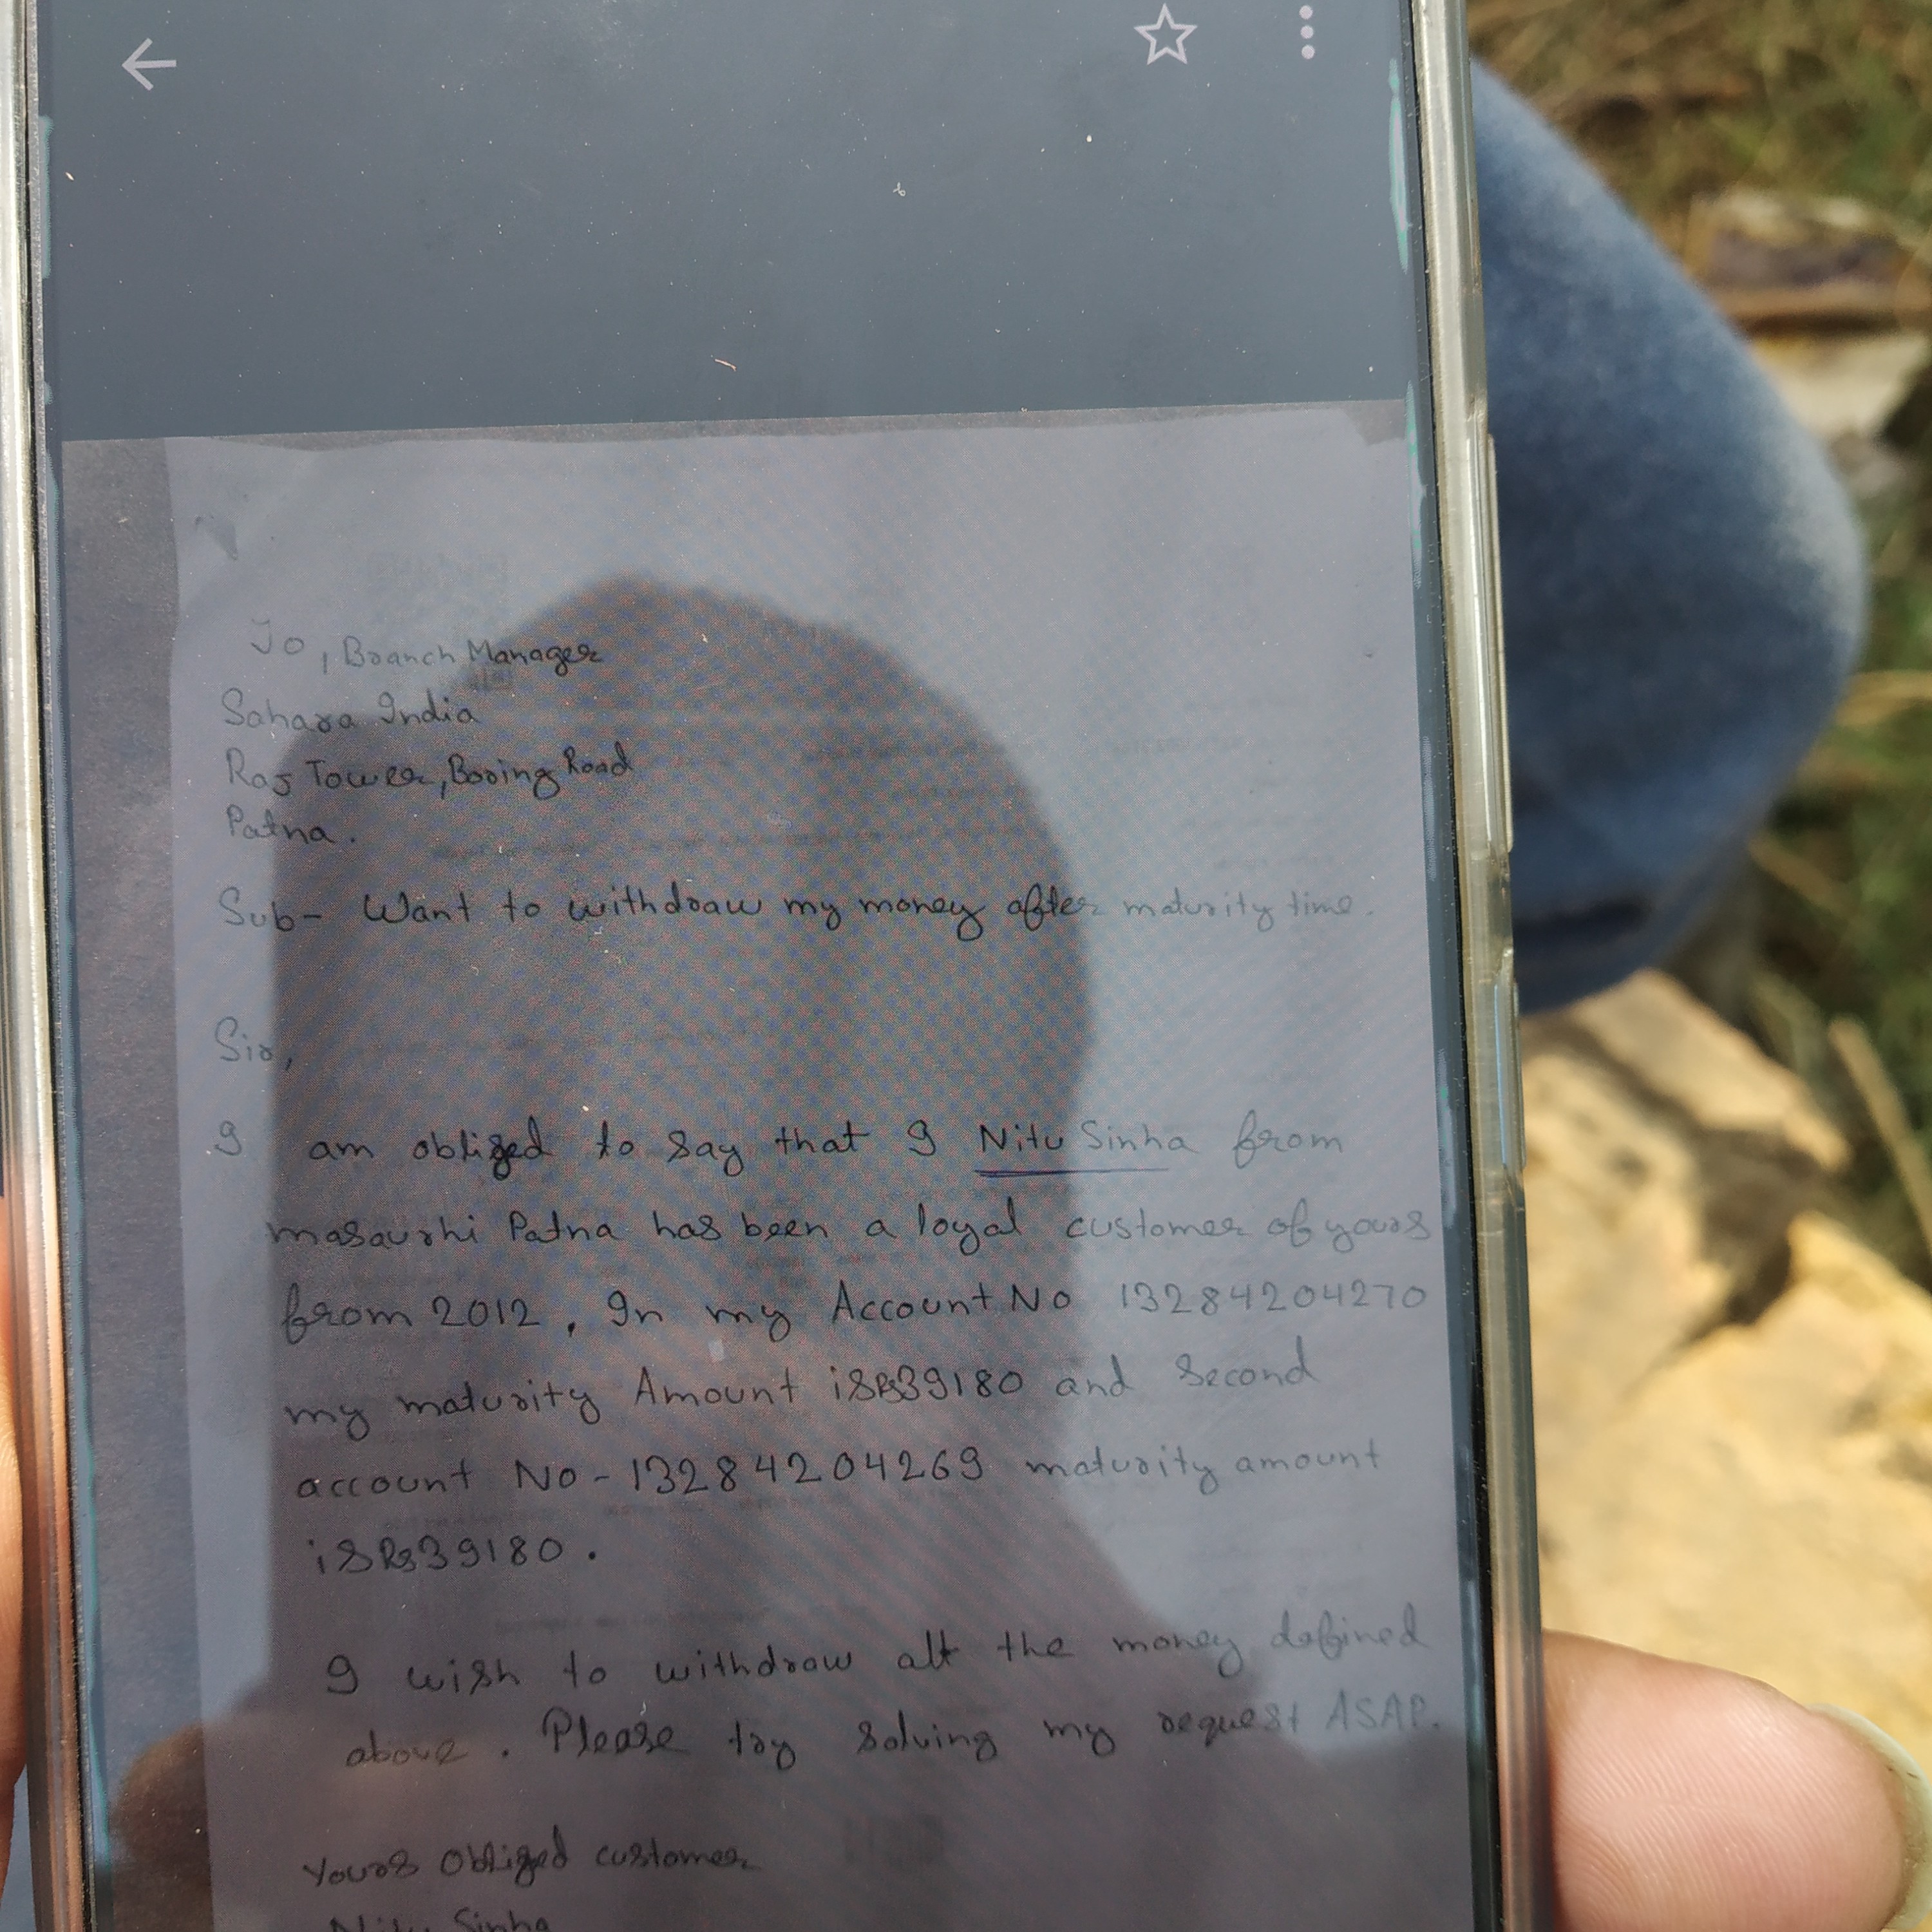 To, Branch Manager
Sahara India
Raj Tower, Boring Road
Patna.
Sub- Want to withdraw my money after maturity time.
Sir,
I am obliged to say that I Nitu Sinha from
masaurhi Patna has been a loyal customer of yours
from 2012, In my Account No 13284204270
my maturity Amount is Rs39180 and second
account No - 13284204269 maturity amount
is Rs39180.
I wish to withdraw all the money defined
above. Please try solving my request ASAP.
Yours obliged customer
Nitu Sinha